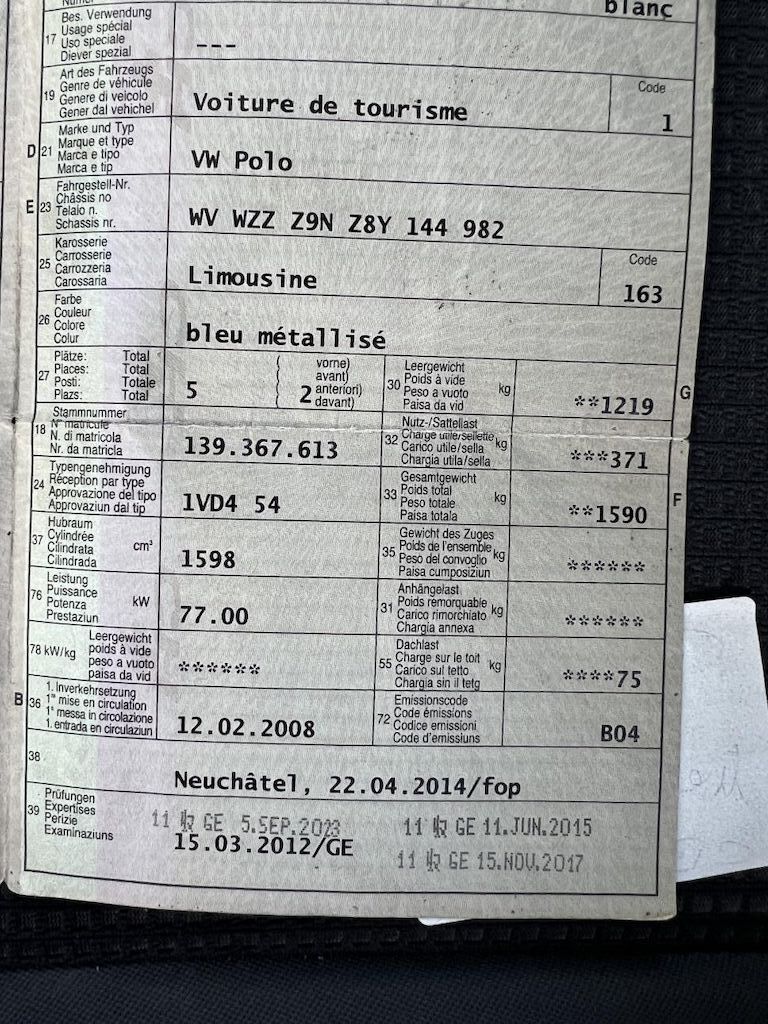 blanc
17 Bes. Verwendung
Usage spécial
Uso speciale
Diever spezial
---
19 Art des Fahrzeugs
Genre de véhicule
Genere di veicolo
Gener dal vehichel
Voiture de tourisme
Code
1
D 21 Marke und Typ
Marque et type
Marca e tipo
Marca e tip
VW Polo
E 23 Fahrgestell-Nr.
Châssis no
Telaio n.
Schassis nr.
WV WZZ Z9N Z8Y 144 982
25 Karosserie
Carrosserie
Carrozzeria
Carossaria
Limousine
Code
163
26 Farbe
Couleur
Colore
Colur
bleu métallisé
27 Plätze: Total
Places: Total
Posti: Totale
Plazs: Total
5
2
vorne)
avant)
anteriori)
davant)
30 Leergewicht
Poids à vide
Peso a vuoto
Paisa da vid
kg
**1219
G
18 Stammnummer
N° matricule
N. di matricola
Nr. da matricla
139.367.613
32 Nutz-/Sattellast
Charge utile/sellette
Carico utile/sella
Chargia utila/sella
kg
***371
24 Typengenehmigung
Réception par type
Approvazione del tipo
Approvaziun dal tip
1VD4 54
33 Gesamtgewicht
Poids total
Peso totale
Paisa totala
kg
**1590
F
37 Hubraum
Cylindrée
Cilindrata
Cilindrada
cm³
1598
35 Gewicht des Zuges
Poids de l'ensemble
Peso del convoglio
Paisa cumposiziun
kg
******
76 Leistung
Puissance
Potenza
Prestaziun
kW
77.00
31 Anhängelast
Poids remorquable
Carico rimorchiato
Chargia annexa
kg
******
78 kW/kg Leergewicht
poids à vide
peso a vuoto
paisa da vid
******
55 Dachlast
Charge sur le toit
Carico sul tetto
Chargia sin il tetg
kg
****75
B 36 1. Inverkehrsetzung
1re mise en circulation
1a messa in circolazione
1. entrada en circulaziun
12.02.2008
72 Emissionscode
Code émissions
Codice emissioni
Code d'emissiuns
B04
38
Neuchâtel, 22.04.2014/fop
39 Prüfungen
Expertises
Perizie
Examinaziuns
11 GE 5.SEP.2023
11 GE 11.JUN.2015
15.03.2012/GE
11 GE 15.NOV.2017